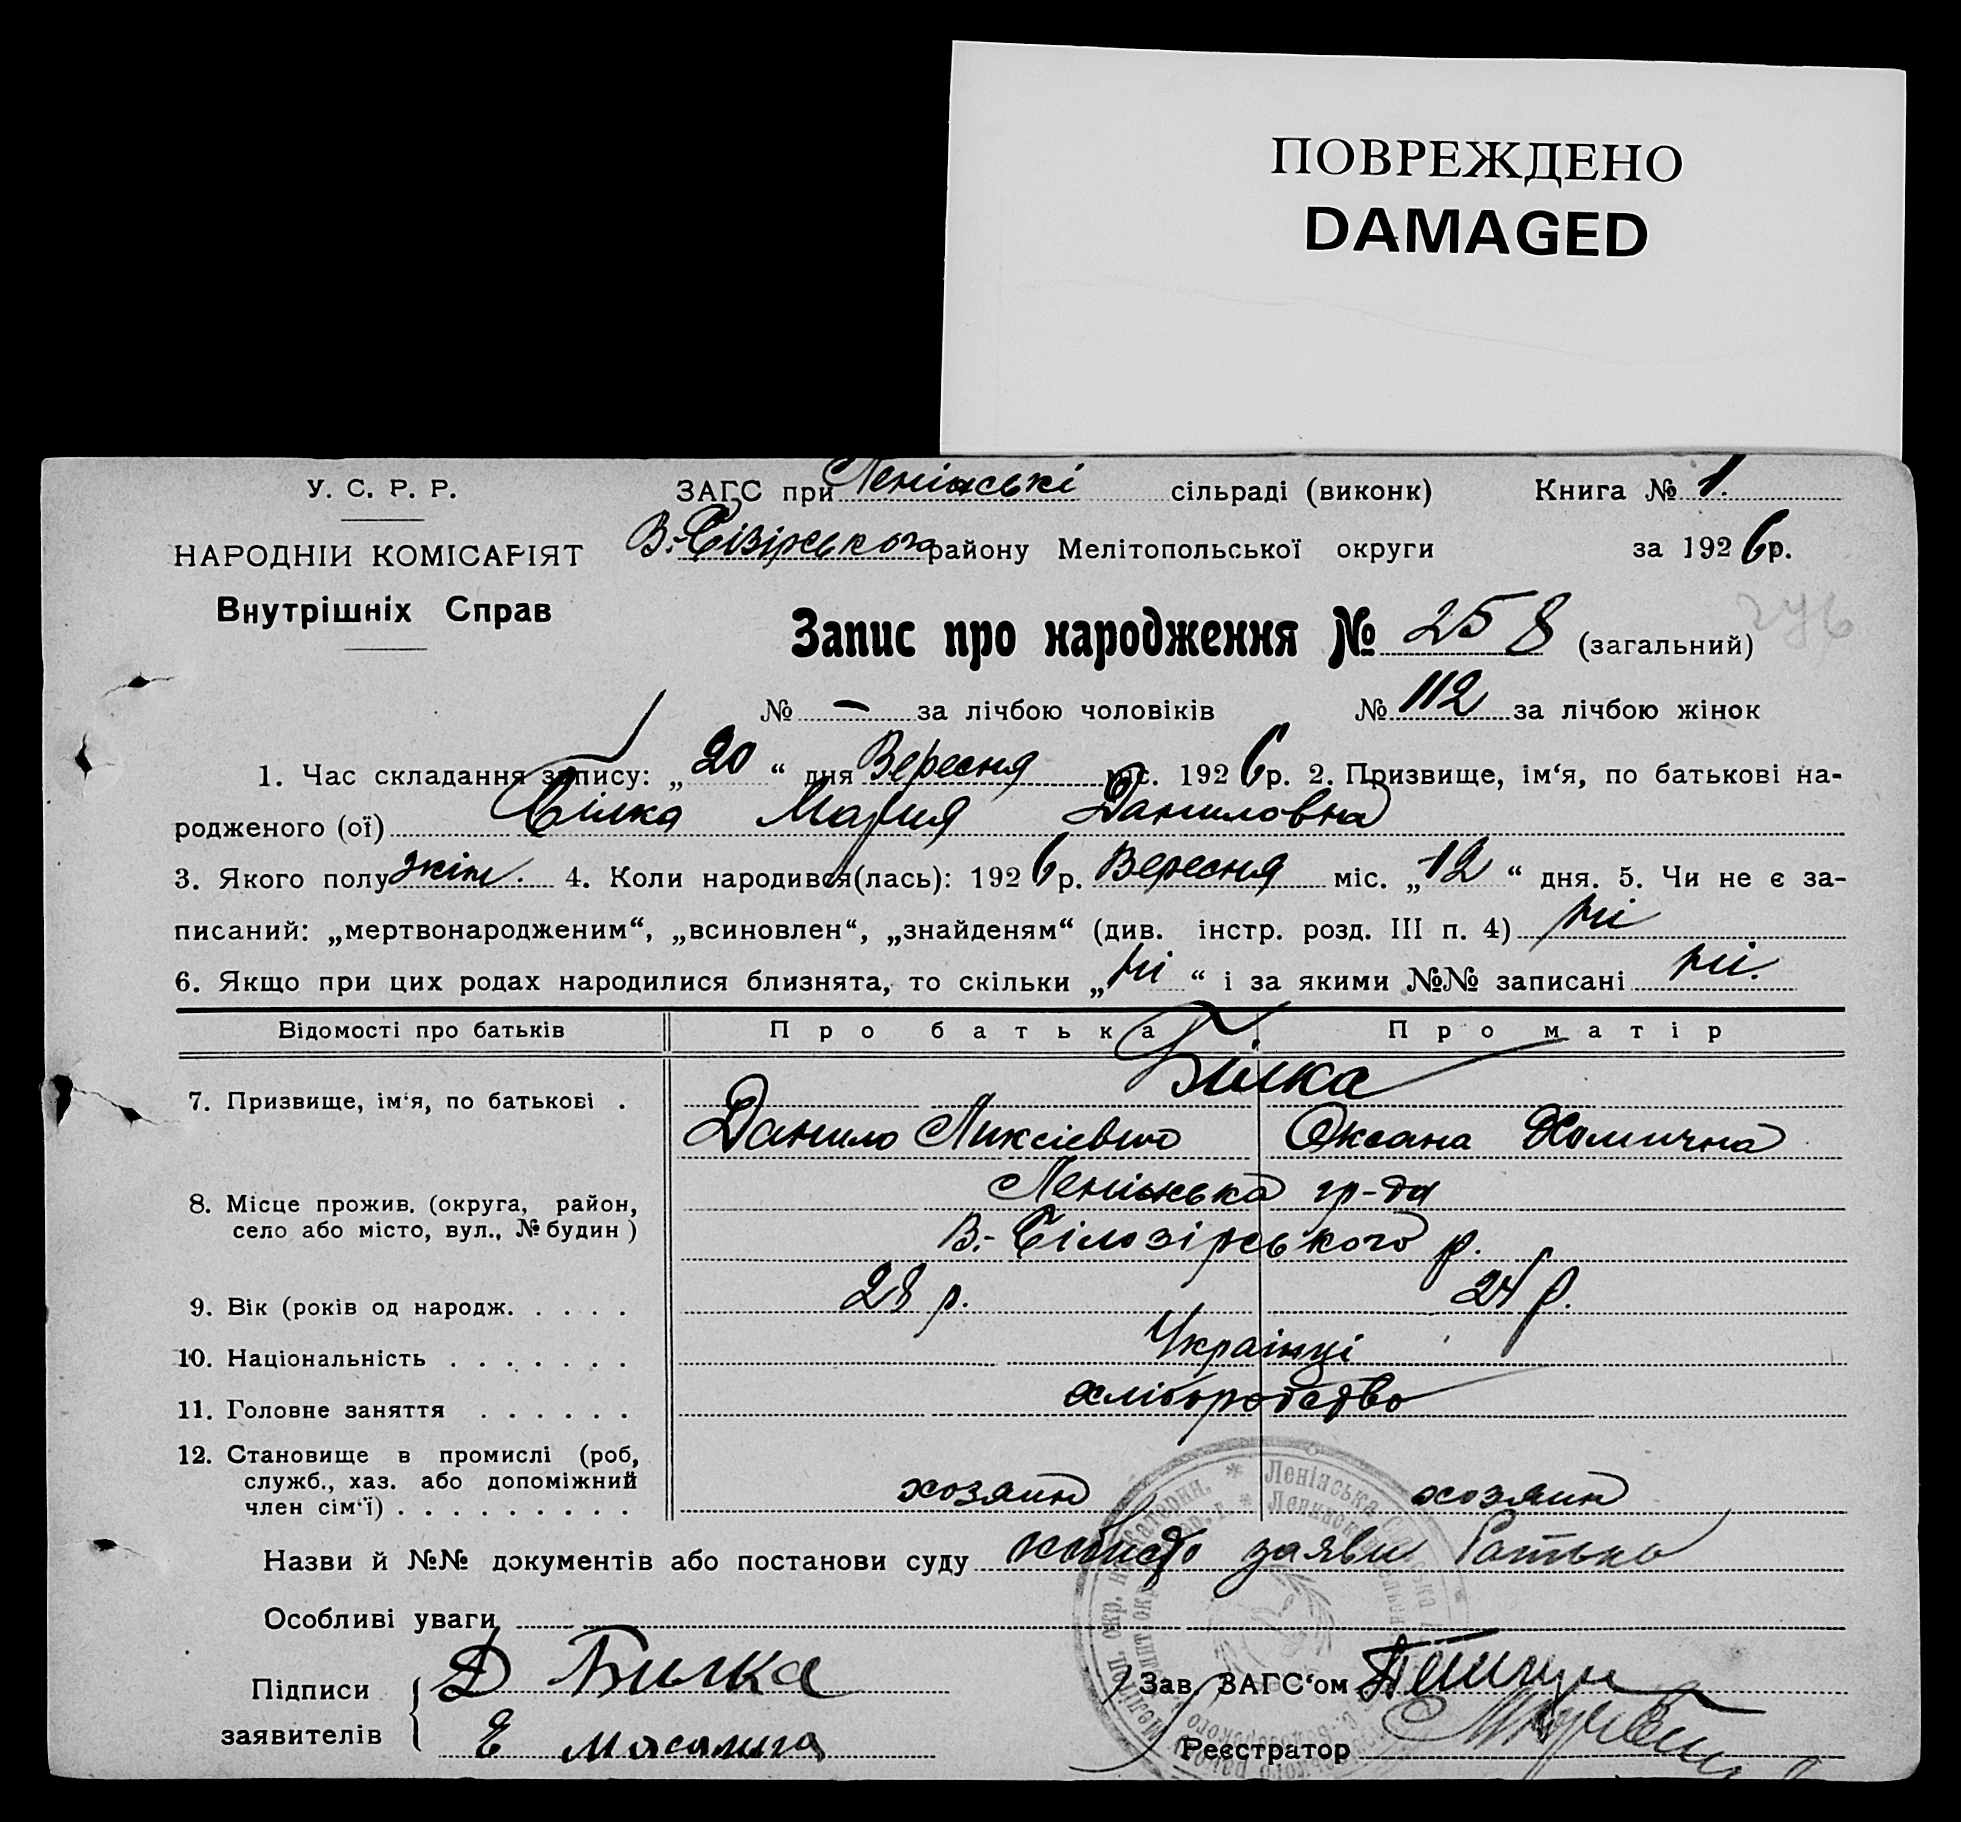 ПОВРЕЖДЕНО
DAMAGED
У. С. Р. Р.
НАРОДНІЙ КОМІСАРІЯТ
Внутрішніх Справ
ЗАГС при Ленінські сільраді (виконк) Книга № 1.
району Мелітопольської округи за 1926 р.
Запис про народження № 258 (загальний)
№ – за лічбою чоловіків № 112 за лічбою жінок
1. Час складання запису: „20“ дня Вересня міс. 1926 р. 2. Призвище, ім‘я, по батькові на-
родженого (ої) Білка Мария Даниловна
3. Якого полу жін. 4. Коли народився(лась): 1926 р. Вересня міс. „12“ дня. 5. Чи не є за-
писаний: „мертвонародженим“, „всиновлен“, „знайденям“ (див. інстр. розд. III п. 4) ні
6. Якщо при цих родах народилися близнята, то скільки „ні“ і за якими №№ записані ні.
Відомості про батьків Про батька Про матір
Білка
7. Призвище, ім‘я, по батькові .
Данило Оксана Хомична
8. Місце прожив. (округа, район,
село або місто, вул., № будин)
Ленінська гр-да
В.-Білозірського р.
9. Вік (років од народж. . . . . 28 р. 24 р.
10. Національність . . . . . . . Українці
11. Головне заняття . . . . . . хліборобство
12. Становище в промислі (роб,
служб., хаз. або допоміжний
член сім‘ї) . . . . . . . . . хозяин хозяин
Назви й №№ документів або постанови суду заяви
Особливі уваги
Підписи
заявителів
Д Билка
Е
Зав. ЗАГС‘ом
Реєстратор